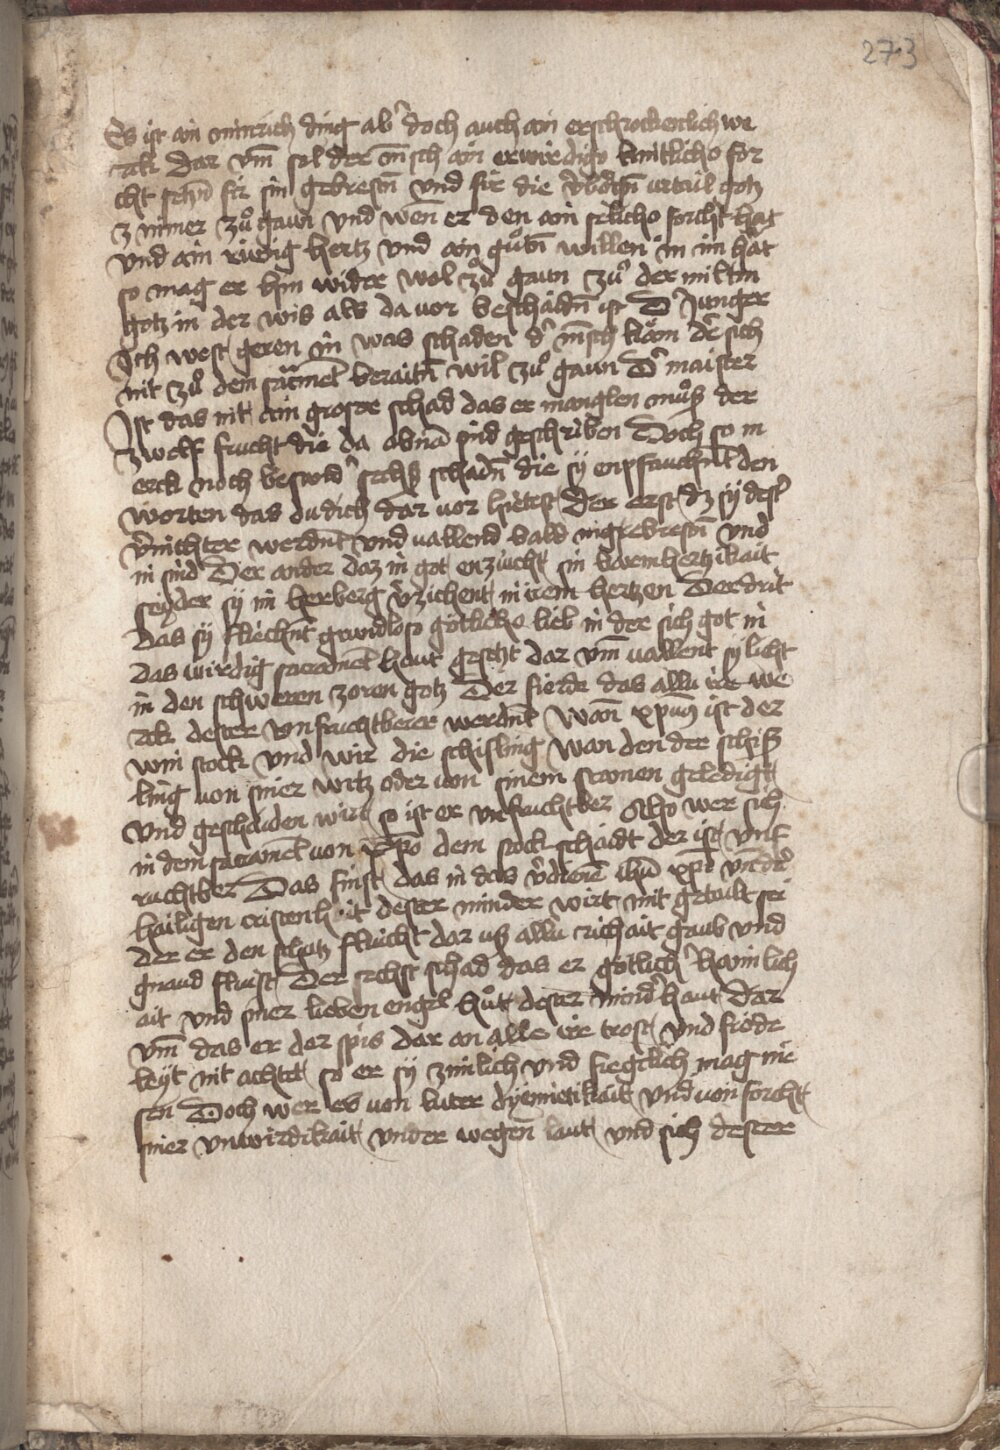 273
Es ist ain minrich ding ab̄ doch auch ain erschrockenlich we
rck Dar vm̄ sol der m̄sch ain erwirdigo kintlicho for
cht sehn̄ fir sin gebrestn̄ vnd fir die v̄bo᷒gn̄ vrtail gotz
z nimer zuͦ gaun vnd wen̄ er den ain sēlicho forcht hat
vnd ain riuwig hertz vnd ain guͦtn̄ willen in im hat
so mag er hin wider wol zuͦ gaun zuͦ der miltin
gotz in der wis als da vor beschaidn̄ ist D Junger
Ich west geren in was schaden d᷒ m̄sch käm der sich
nit zuͦ dem sacramēt beraitn̄ wil zuͦ gaun D᷒ maister
Ist das nit ain grosser schad das er manglen muͦß der
zwelf frucht die da obnā sind geschriben Doch so m
erck noch besond᷒ sechß schadn̄ die sy enpfauchn̄t den
worten das du dich dar vor hietest Der erst dz sy dest᷒
v̄nichter werdn̄t vnd vallend bald in gebrestn̄ vnd
in sind Der ander daz in got enzucht sin barmhertzikait
seyder sy im herberg v̄zichent in irem hertzen Der drit
das sy fliechn̄t grundloso götlicho lieb in der sich got in
das wirdig sacramēt haut gesetzt dar vm̄ vallent sy licht
in den schweren zoren gotz Der fierde das allu ire we
rck dester vnfruchtberer werdn̄t Wan̄ xpus ist der
win stock vnd wir die schisling wan den der schiß
ling von siner wrtz oder von sinem stamen geledigt
vnd geschaiden wirt so ist er vnfruchtber Also wer sich
in dem sacramēt von xp̄o dem stock schaidt der ist vnf
ruchtber Das finft das in das v̄dienē ihū xpi vn̄ der
hailigen cristenhait dester minder wirt mit getailt sei
der er den schatz fluicht dar uß allu richait gaub vnd
gnaud flust Der sechst schad das er götlich᷒ haimlich
ait vnd siner lieben engel huͦt dester mind᷒ haut Dar
vm̄ das er der spis dar an alle ire trost vnd fröde
leyt nit achtet so er sy zimlich vnd fieglich mag nie
sen Doch wer es von luter dyemietikait vnd von forcht
siner vnwirdikait vnder wegen laut vnd sich dester